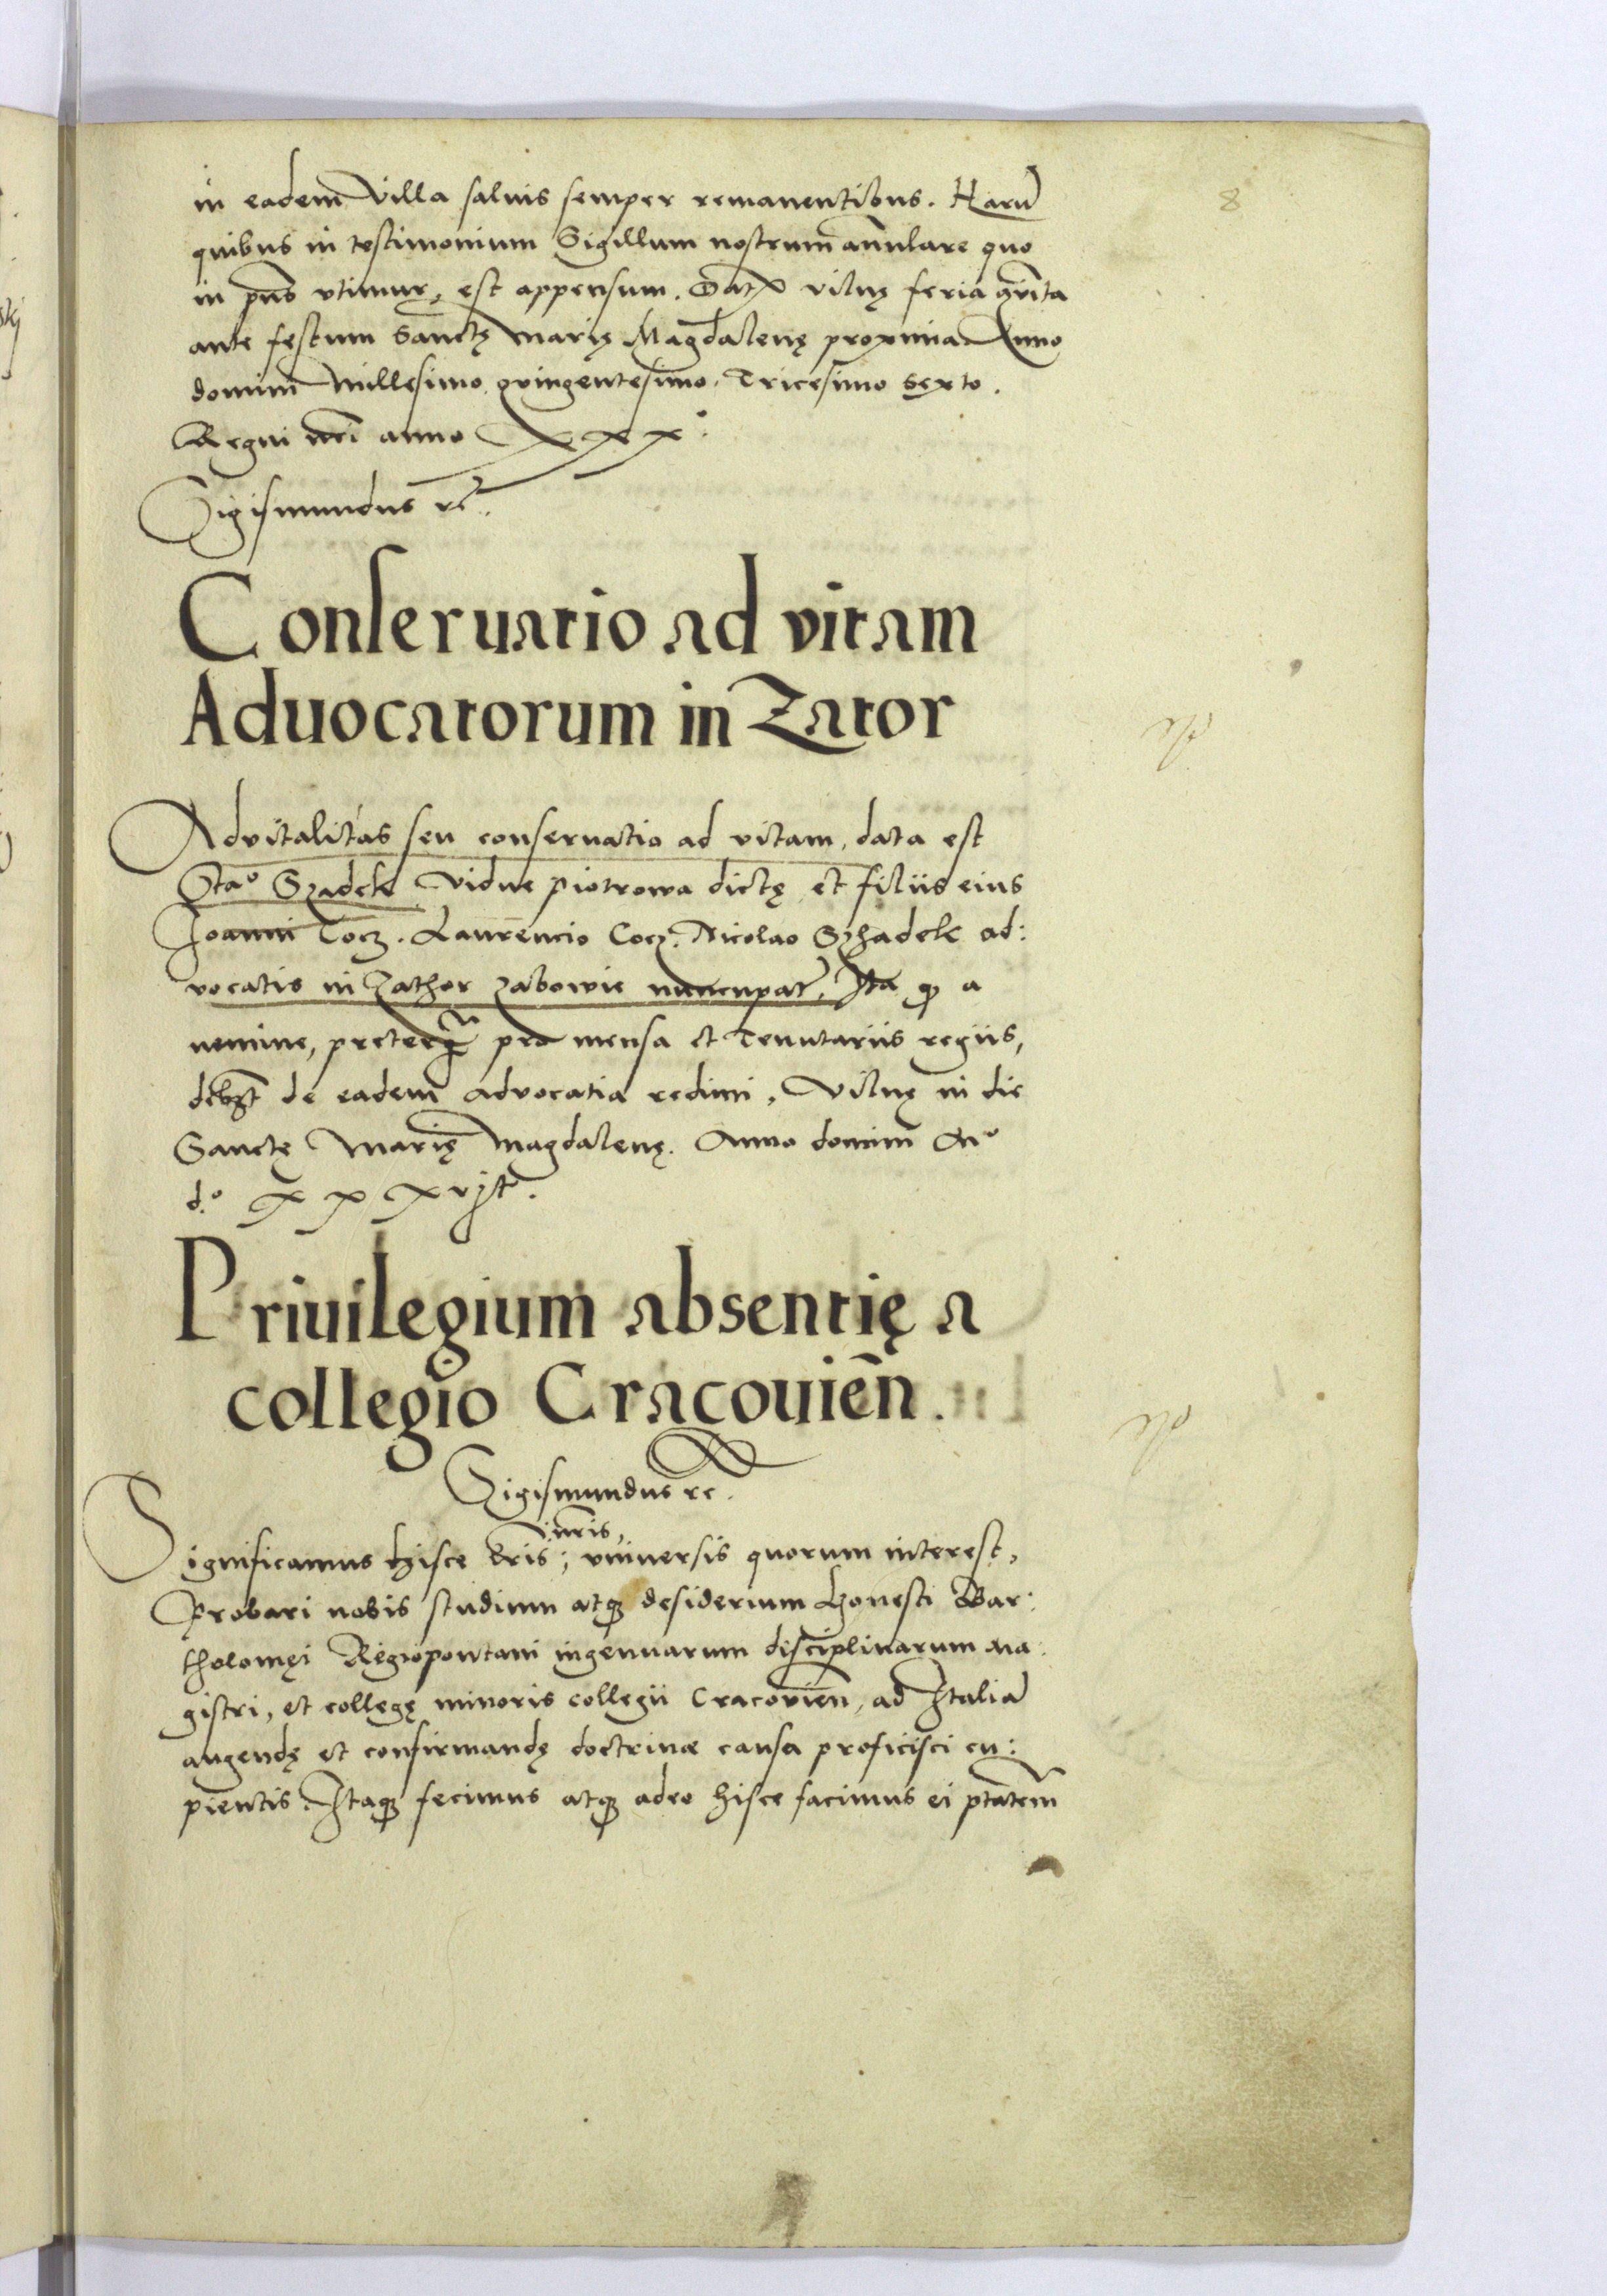 8
in eadem Villa saluis semper remanentibus. Harũ
quibus in testimonium Sigillum nostrum annulare quo
in pñs vtimur, est appensum. Dat vilnę feria qvinta
ante festum Sanctę Marię Magdalenę proxima Anno
domini Millesimo qvingentesimo Tricesimo Sexto.
Regni nr̃i anno XXX°.
Sigismundus rex.
Conseruatio ad vitam
Aduocatorum in Zator
Advitalitas seu conseruatio ad vitam, data est
Szadek Vidue piotrowa dictę et filiis eius
Joanni Cocz. Laurencio Cocz. Nicolao Szhadek ad:
vocatis in Zathor zabowie nuncupat̃, Ita q a
nemine, preterq̃ pro mensa et Tenutariis regiis,
debet de eadem advocatia redimi, Vilnę in die
Sanctę Marię Magdalenę. Anno domini M°
d.° XXXvjto.
Priuilegium absentię a
collegio Cracouień.
Sigismundus rc.
Significamus hisce lr̃is nr̃is, vniuersis quorum interest,
Probari nobis studium atq desiderium honesti Bar:
tholomęi Regiopontani ingenuarum disciplinarum ma:
gistri, et collegę minoris collegii Cracovień, ad Italiã
augendę et confirmandę doctrinæ causa proficisci cu:
pientis. Itaq fecimus atq adeo hisce facimus ei ptãtem